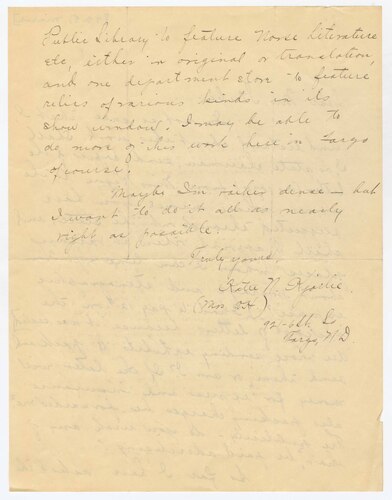 Public Library to feature Norse literature
etc, either in original or translation,
and one department store to feature
relics of various kinds in its
show window. I may be able to
do more of this work here in Fargo
of course!
Maybe I'm rather dense – but
I want to do it all as nearly
right as possible.
Truly yours,
Katie N.
(Mrs. O.H.)
921-6th St. So
Fargo, N D.